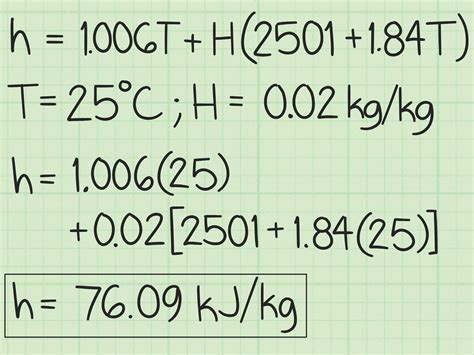 h = 1.006T + H(2501 + 1.84T)
T = 25°C ; H = 0.02 kg/kg
h = 1.006(25)
+0.02[2501 + 1.84(25)]
h = 76.09 kJ/kg